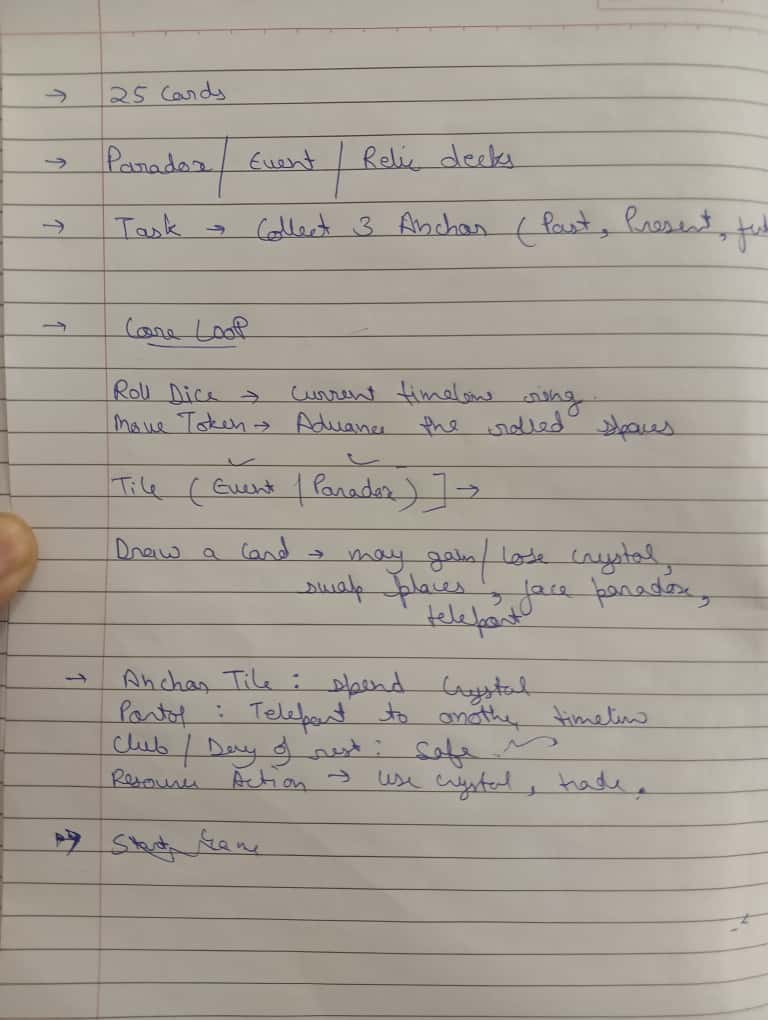 → 25 Cards
→ Paradox / Event / Relic decks
→ Task → Collect 3 Anchor (Past, Present, fut
→ Core Loop
Roll Dice → Current timeline ring.
Move Token → Advance the rolled spaces
Tile (Event / Paradox) ] →
Draw a Card → may gain / lose crystal,
swap places, face paradox,
teleport
→ Anchor Tile : spend Crystal
Portal : Teleport to another timeline
Club / Day of rest : Safe
Resource Action → use crystal, trade.
→ Start Game